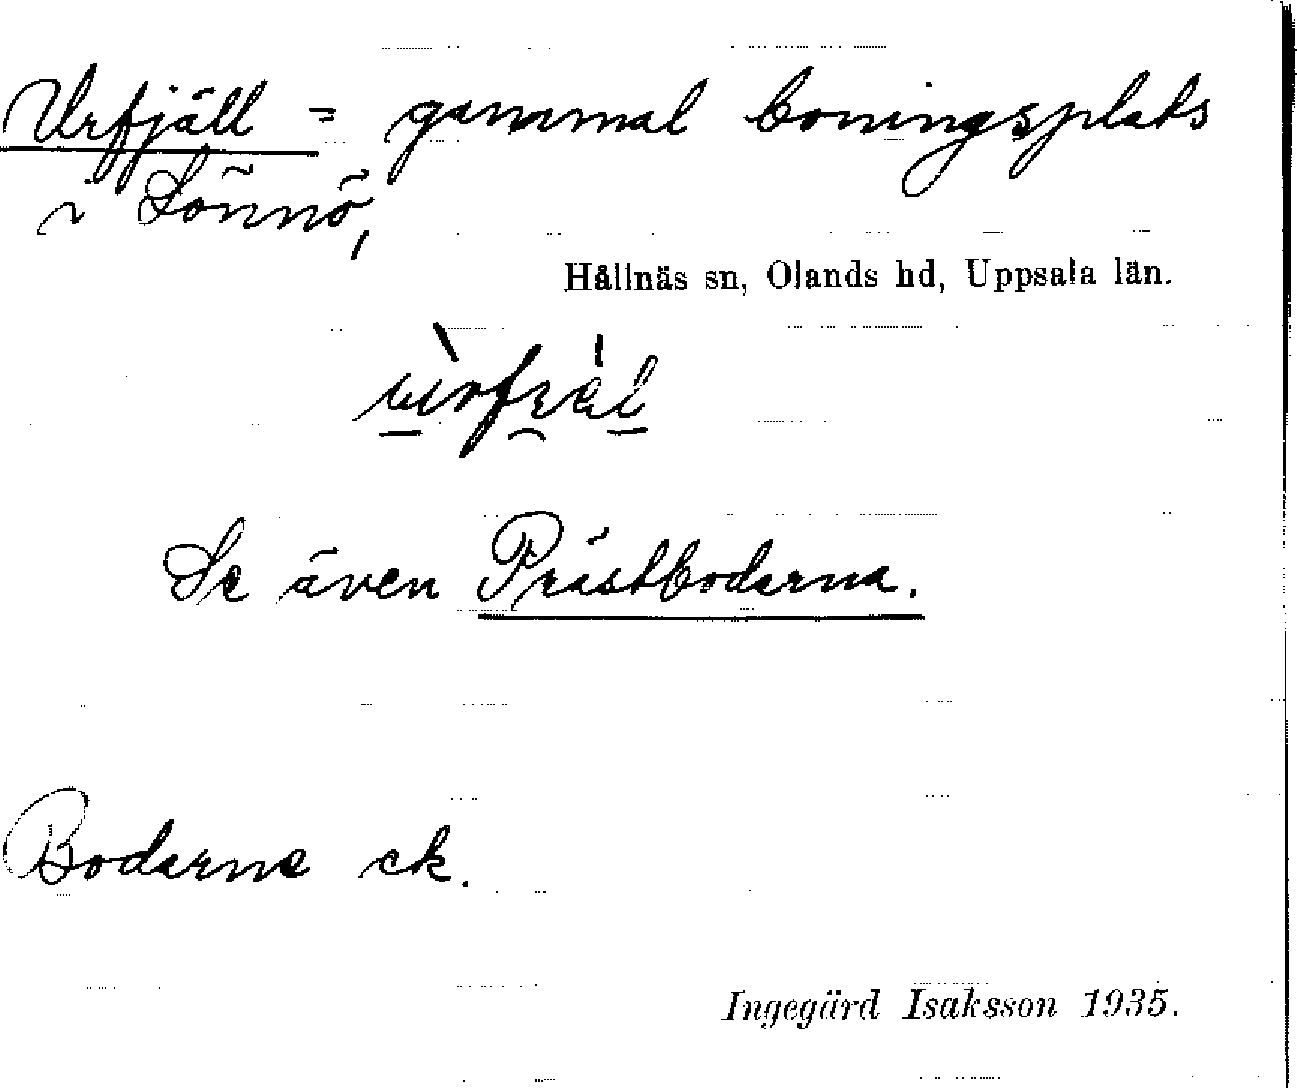 Urfjäll = gammal boningsplats
i Sönnö,
Hållnäs sn, Olands hd, Uppsala län.
Se även Prästbodarna.
Bodarne ek.
Ingegärd Isaksson 1935.